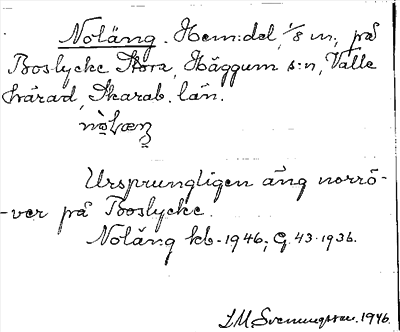 Noläng. Hem:del, 1/8 m, på
Boslycke Stora, Häggum s:n, Valle
härad, Skarab. län.
nòLæŋ
Ursprungligen äng norrö-
-ver på Boslycke.
Noläng kb. 1946; G. 43. 1936.
I.M. Svenungsson. 1946.